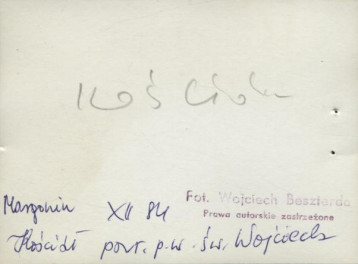 Kościół
Fot. Wojciech Beszterda
Prawa autorskie zastrzeżone
Margonin XII 84
Kościół par. p.w. św. Wojciecha